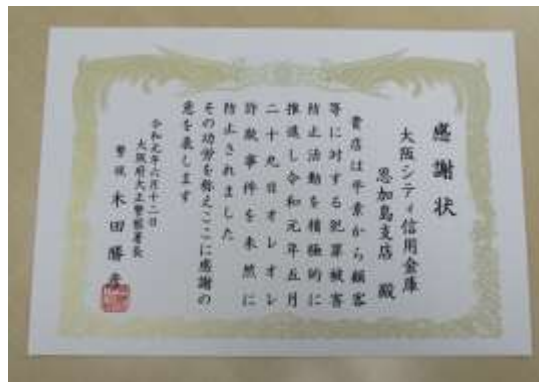 感謝状
大阪シティ信用金庫
恩加島支店 殿
貴店は平素から顧客
等に対する犯罪被害
防止活動を積極的に
推進し令和元年五月
二十九日オレオレ
詐欺事件を未然に
防止されました
その功労を称えここに感謝の
意を表します
令和元年六月十二日
大阪府大正警察署長
警視 木田勝彦